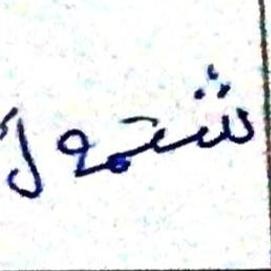 شتمول